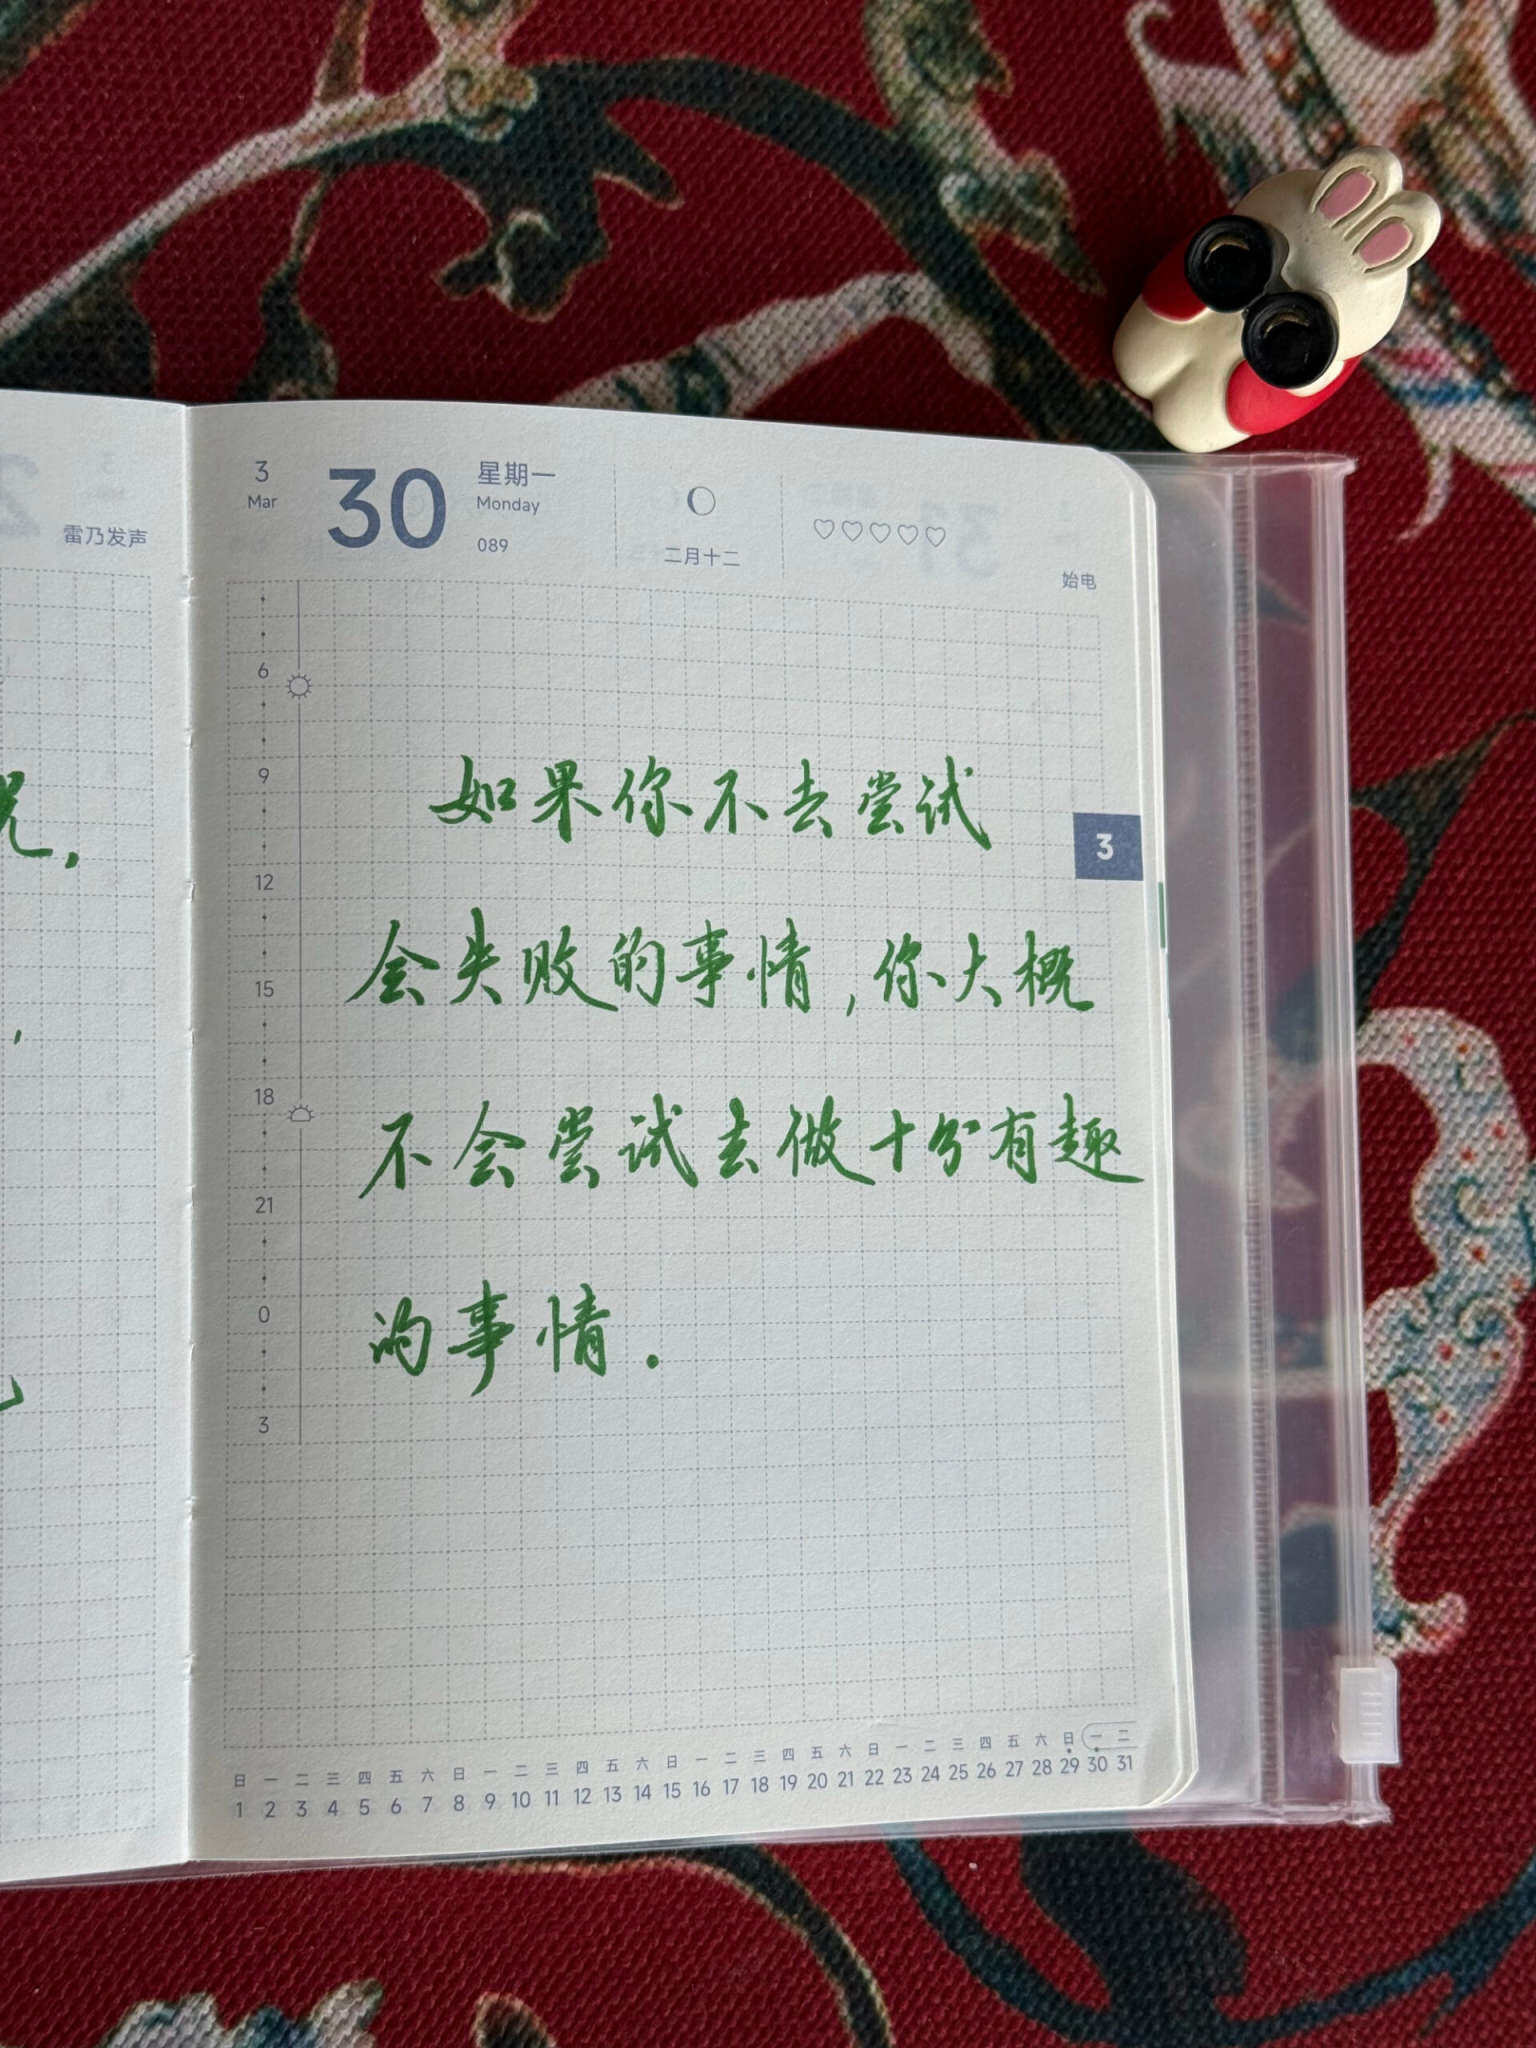 雷乃发声
3
Mar
30
星期一
Monday
089
二月十二
始电
6
9
12
15
18
21
0
3
3
如果你不去尝试
会失败的事情,你大概
不会尝试去做十分有趣
的事情.
日 一 二 三 四 五 六 日 一 二 三 四 五 六 日 一 二 三 四 五 六 日 一 二 三 四 五 六 日 一 二
1 2 3 4 5 6 7 8 9 10 11 12 13 14 15 16 17 18 19 20 21 22 23 24 25 26 27 28 29 30 31